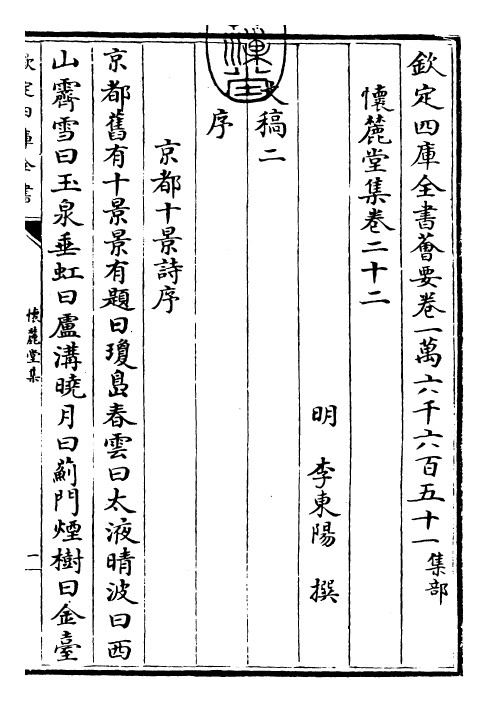 欽定四庫全書薈要卷一萬六千六百五十一集部
懷麓堂集卷二十二
明 李東陽 撰
稿二
序
京都十景詩序
京都舊有十景景有題曰瓊島春雲曰太液晴波曰西
山霽雪曰玉泉垂虹曰盧溝曉月曰薊門煙樹曰金臺
欽定四庫全書
懷麓堂集
一